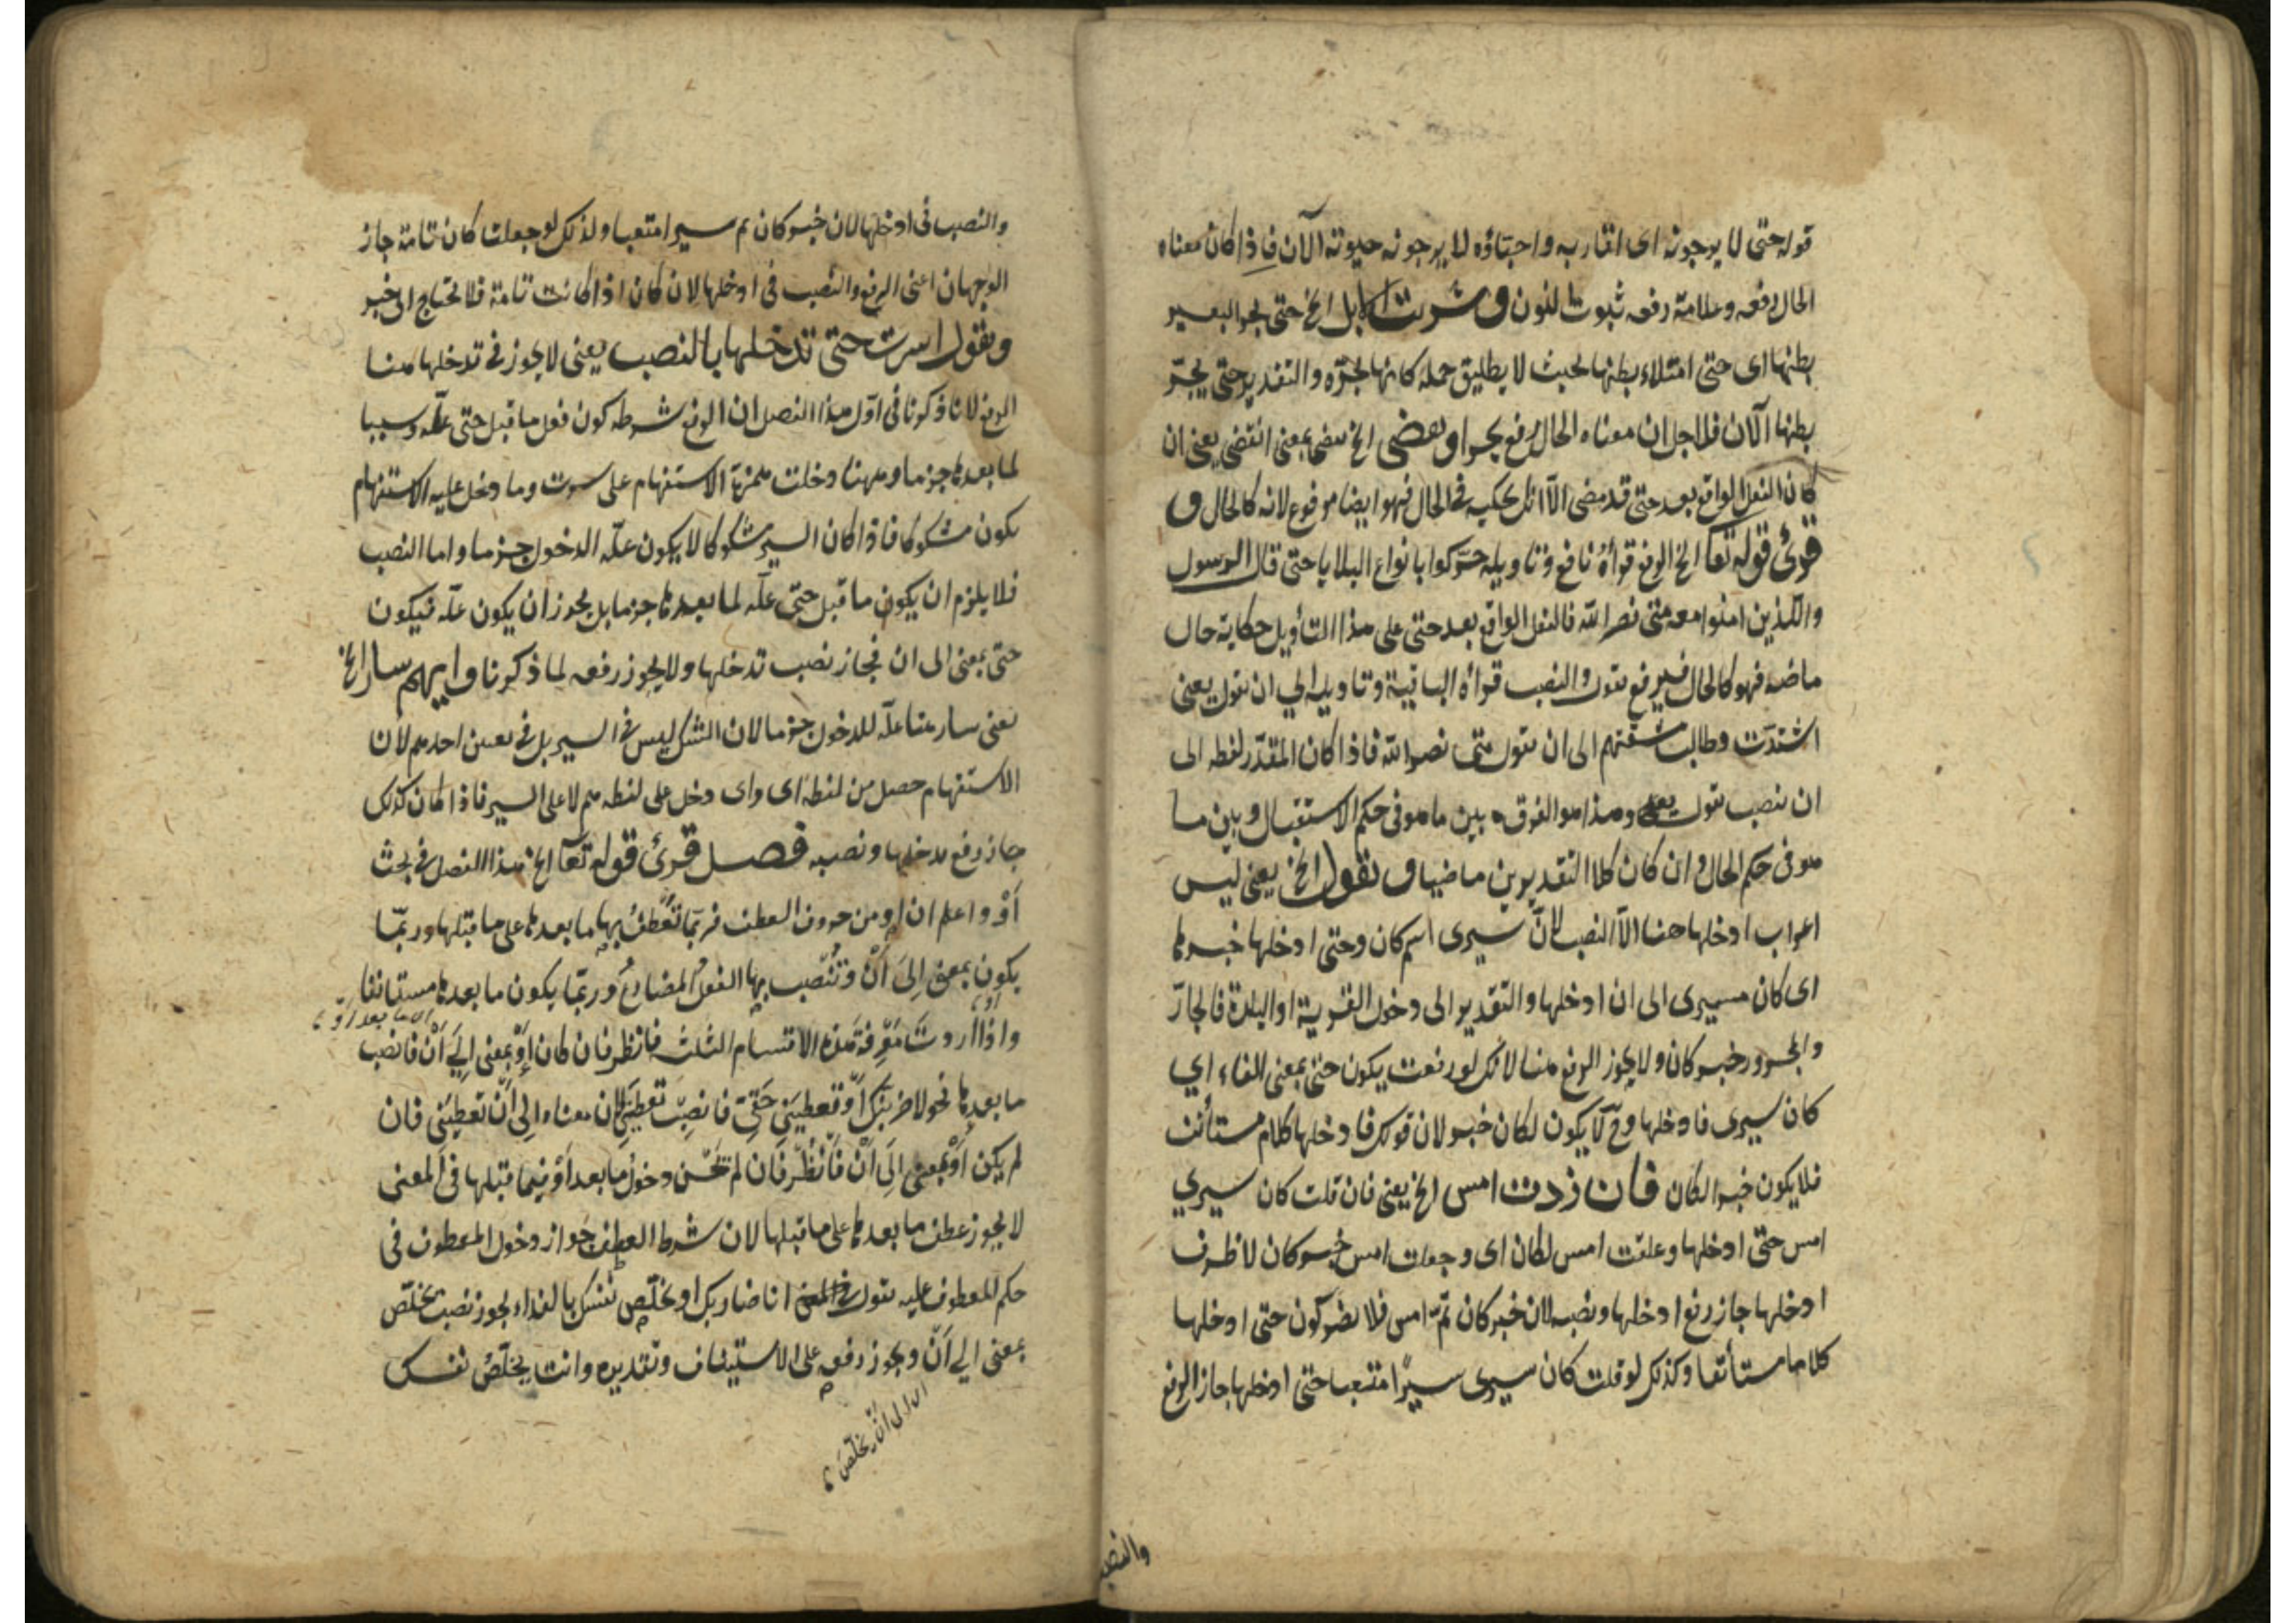 قوله حتى لا يرجونه اى اقاربه واحباؤه لا يرجونه حيوته الآن فاذا كان معناه
الحال رفعه وعلامة رفعه ثبوت النون وشربت الابل الخ حتى يجر البعير
بطنها اى حتى امتلاء بطنها بحيث لا يطيق حمله كانها تجره والتقدير حتى يجرّ
بطنها الآن فلاجل ان معناه الحال رفع يجر او تقضى الخ تقضى بمعنى انقضى يعنى ان
كان الفعل الواقع بعد حتى قد مضى الّا انك تحكيه فى الحال فهو ايضا مرفوع لانه كالحال و
قرئ قوله تعا الخ الرفع قرأة نافع وتاويله حرّكوا بانواع البلايا حتى قال الرسول
والّذين امنوا معه متى نصر الله فالفعل الواقع بعد حتى على هذا التأويل حكاية حال
ماضيه فهو كالحال فيرفع يقول والنصب قرأة الباقية وتاويله الي ان يقول يعنى
اشتدّت وطالت مشقتهم الى ان يقول متى نصر الله فاذا كان المقدّر لفظه الى
ان نصب يقول وهذا هو الفرق بين ما هو فى حكم الاستقبال وبين ما
هو فى حكم الحال وان كان كلا التقديرين ماضيا وتقول الخ يعنى ليس
اعراب ادخلها هنا الّا النصب لانّ سيرى اسم كان وحتى ادخلها خبرها
اى كان مسيرى الى ان ادخلها والتقدير الى دخول القرية او البلدة فالجارّ
والمجرور خبر كان ولا يجوز الرفع هنا لانك لو رفعت يكون حتى بمعنى الفاء اي
كان سيرى فادخلها وح لا يكون لكان خبر لان قولك فادخلها كلام مستأنف
فلا يكون خبرا لكان فان زدت امس الخ يعنى فان قلت كان سيري
امس حتى ادخلها وعلقت امس لكان اى وجعلت امس خبر كان لا ظرف
ادخلها جاز رفع ادخلها ونصبه لان خبر كان تمّ امس فلا يضر كون حتى ادخلها
كلاما مستأنفا وكذلك لو قلت كان سيرى سيرًا متعبا حتى ادخلها جاز الرفع
والنصب
والنصب فى ادخلها لان خبر كان تم سيرا متعبا ولذلك لو جعلت كان تامة جاز
الوجهان اعنى الرفع والنصب فى ادخلها لان كان اذا كانت تامة فلا تحتاج الى خبر
وتقول اسرت حتى تدخلها بالنصب يعنى لا يجوز فى تدخلها هنا
الرفع لانا ذكرنا فى اوّل هذا الفصل ان الرفع شرطه كون فعل ما قبل حتى علّة وسببا
لما بعدها جزما وههنا دخلت همزة الاستفهام على سرت وما دخل عليه الاستفهام
يكون مشكوكا فاذا كان السير مشكوكا لا يكون علّة الدخول جزما واما النصب
فلا يلزم ان يكون ما قبل حتى علّة لما بعدها جزما بل يجوز ان يكون علّة فيكون
حتى بمعنى الى ان فجاز نصب تدخلها ولا يجوز رفعه لما ذكرنا وايهم سار الخ
يعنى سار هنا علّة للدخول جزما لان الشك ليس فى السير بل فى تعين احدهم لان
الاستفهام حصل من لفظه اى واى دخل على لفظه هم لا على السير فاذا كان كذلك
جاز رفع يدخلها ونصبه فصل قرئ قوله تعا الخ هذا الفصل فى بحث
أَوْ واعلم ان او من حروف العطف فربّما تعطف بها ما بعدها على ما قبلها وربّما
يكون بمعنى إلى أَنْ وتنصب بها الفعل المضارع وربّما يكون ما بعدها مستانفا
واذا اردت معرفة هذه الاقسام الثلث فانظر فان كان أو بمعنى الي أن فانصب
ما بعدها نحو لاضربنك أو تعطينى حقى فانصب تعطينى لان معناه الى أن تعطينى فان
لم يكن أو بمعنى الى أن فانظر فان لم تحسن دخول ما بعد أو فيما قبلها فى المعنى
لا يجوز عطف ما بعدها على ما قبلها لان شرط العطف جواز دخول المعطوف فى
حكم المعطوف عليه تقول انا ضاربك او تخلّص نفسك بالفداء يجوز نصب تخلّص
بمعنى الي أنّ ويجوز رفعه على الاستيناف وتقديره وانت تخلّص نفسك